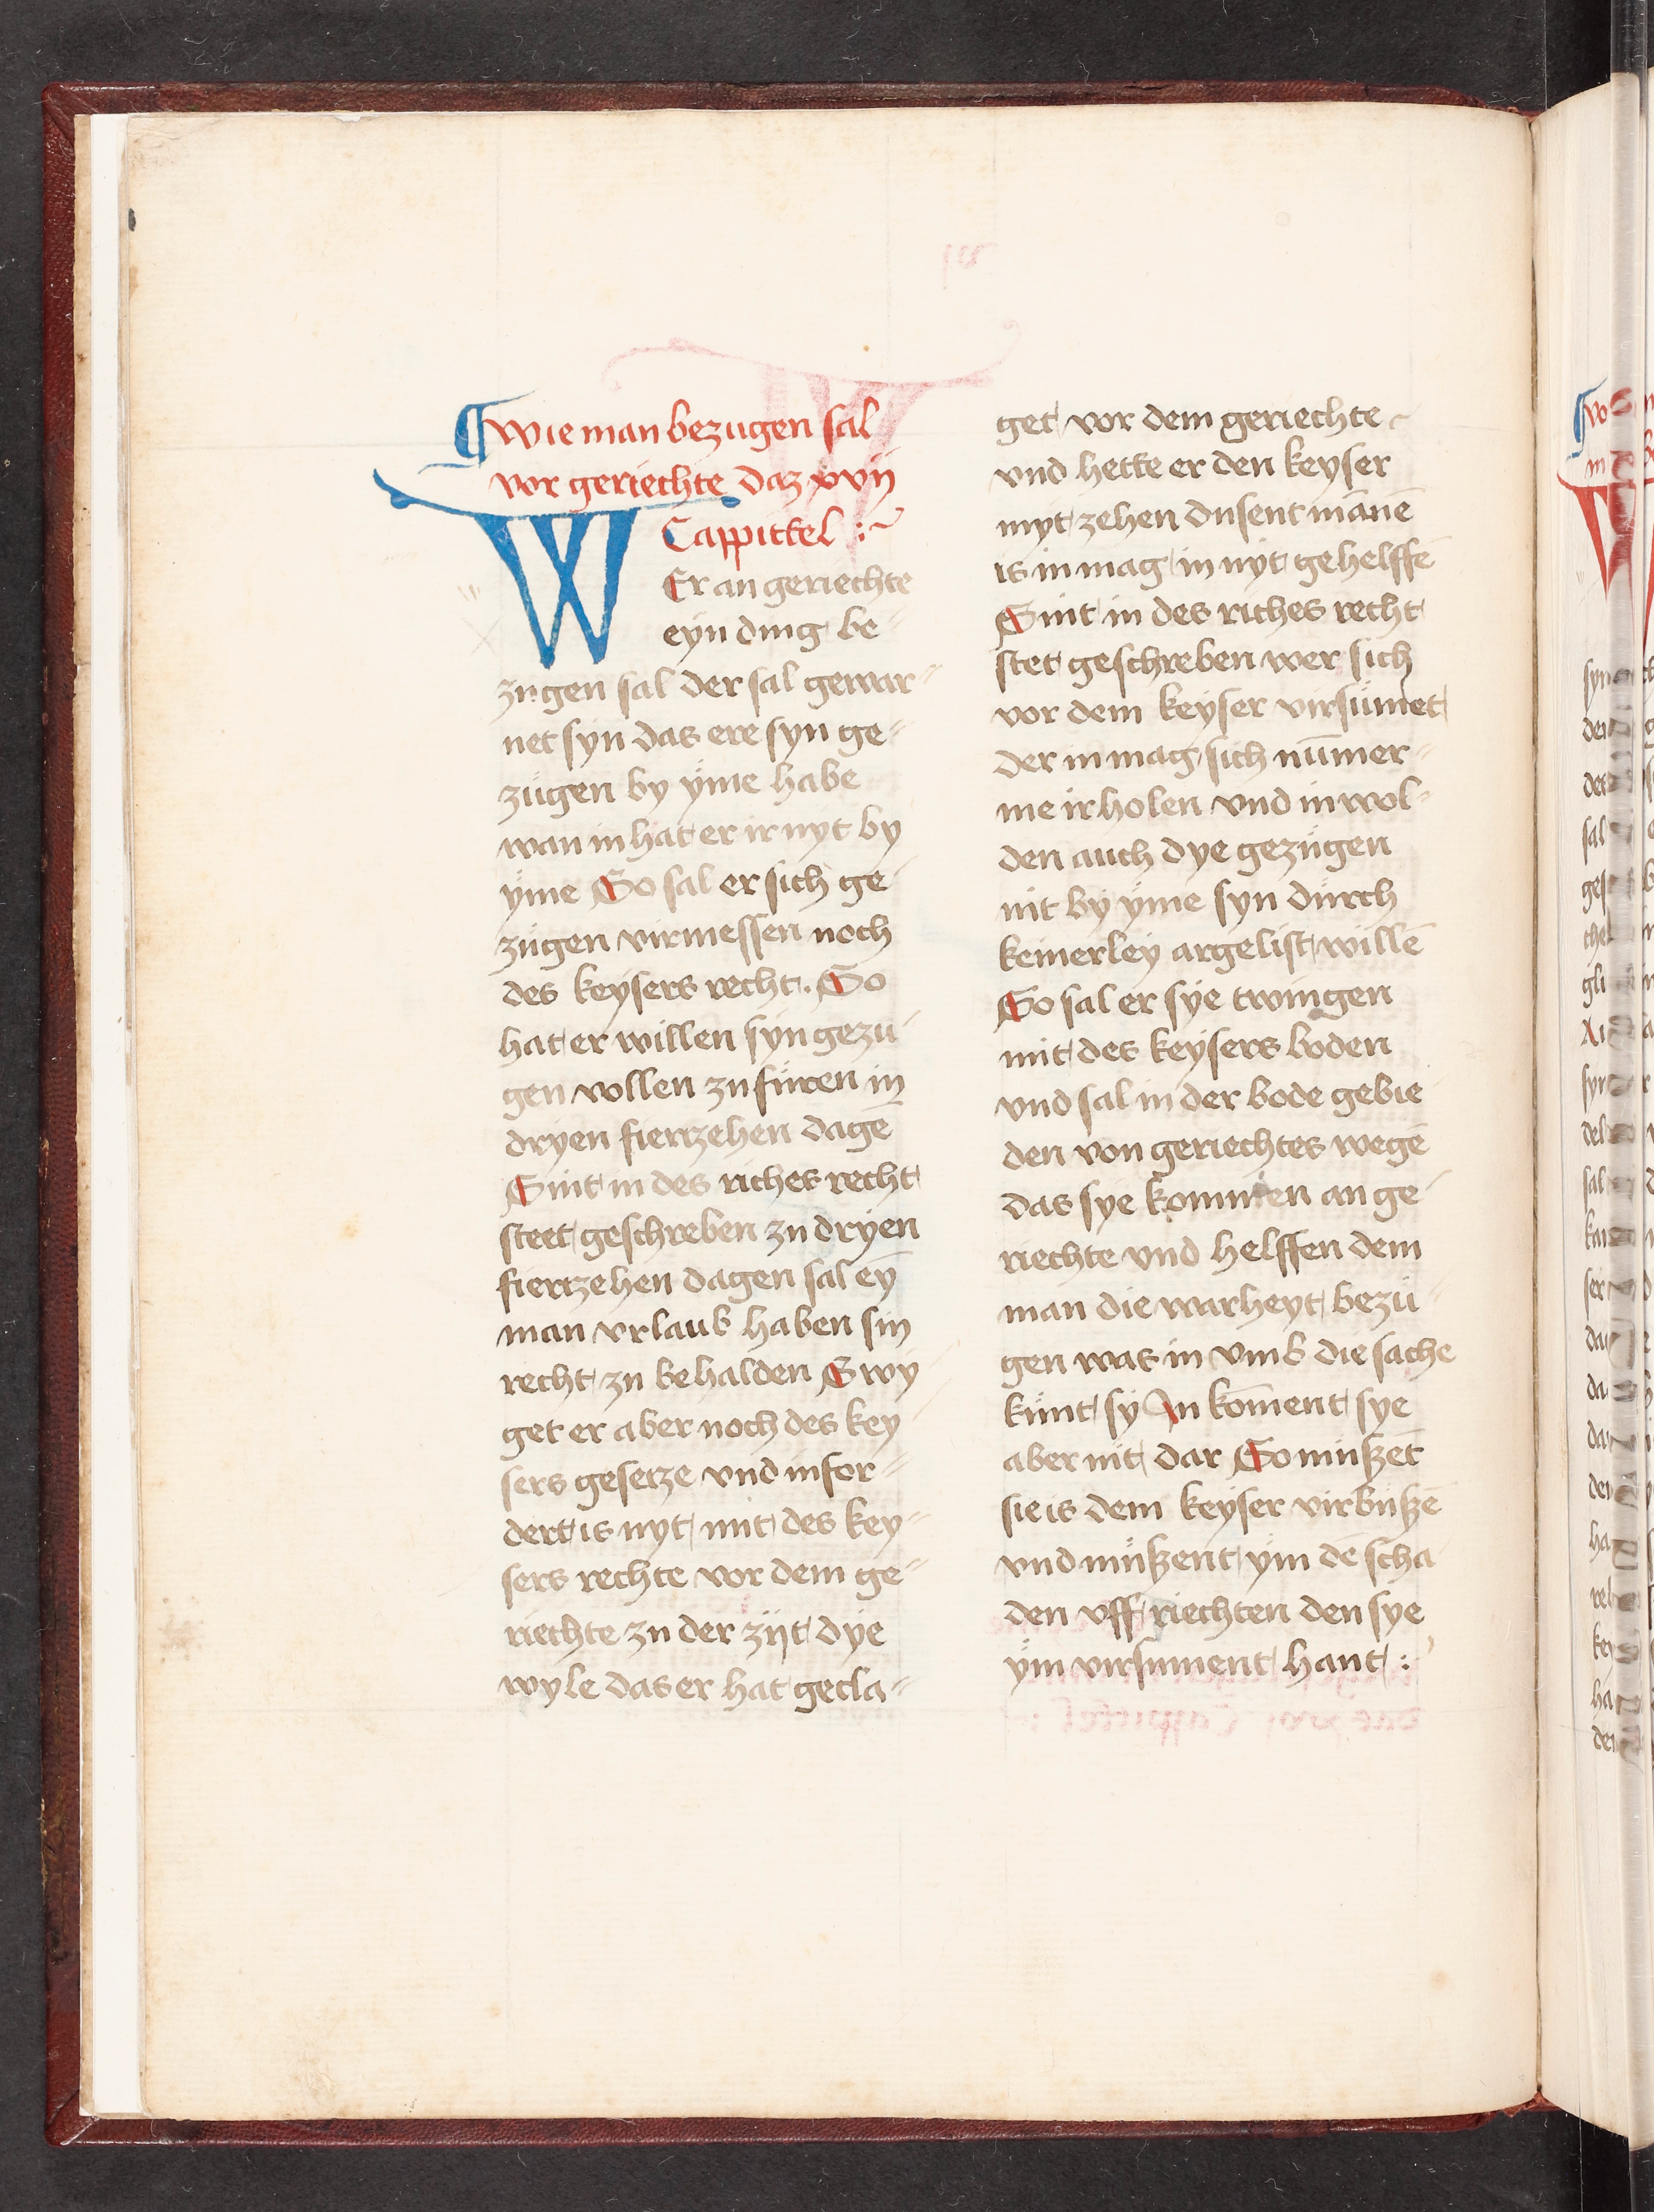 ¶ Wie man bezugen sal
vor geriechte daz xvij
Cappittel :~
WEr an geriechte
eyn ding be-
zugen sal der sal gewar-
net syn das ere syn ge-
zügen by yme habe
wan in hat er ir nyt by
yme So sal er sich ge
zügen virmessen noch
des keysers recht. So
hat er willen syn gezu-
gen vollen zu füren in
dryen fiertzehen dagē
Sint in des riches recht
steet geschreben zu dryen
fiertzehen dagen sal eȳ
man vrlaub haben sin
recht zu behalden Swy
get er aber noch des key
sers gesetze vnd infor-
dert is nyt mit des key-
sers rechte vor dem ge-
riechte zu der zijt dye
wyle das er hat gecla-
get vor dem geriechte
vnd hette er den keyser
myt zehen dusent mānē
is in mag in nyt gehelffē
Sint in des riches recht
stet geschreben wer sich
vor dem keyser virsümet
der in mag sich nūmer-
me irholen vnd in wol-
den auch dye gezügen
nit by yme syn durch
keinerley argelist willē
So sal er sye twingen
mit des keysers boden
vnd sal in der bode gebie
den von geriechtes wegē
das sye kommen an ge-
riechte vnd helffen dem
man die warheyt bezü-
gen was in vmb die sache
künt sy In kōment sye
aber nit dar So mußēt
sie is dem keyser virbußē
vnd müßent ym dē scha
den vff riechten den sye
ym virsument hant :